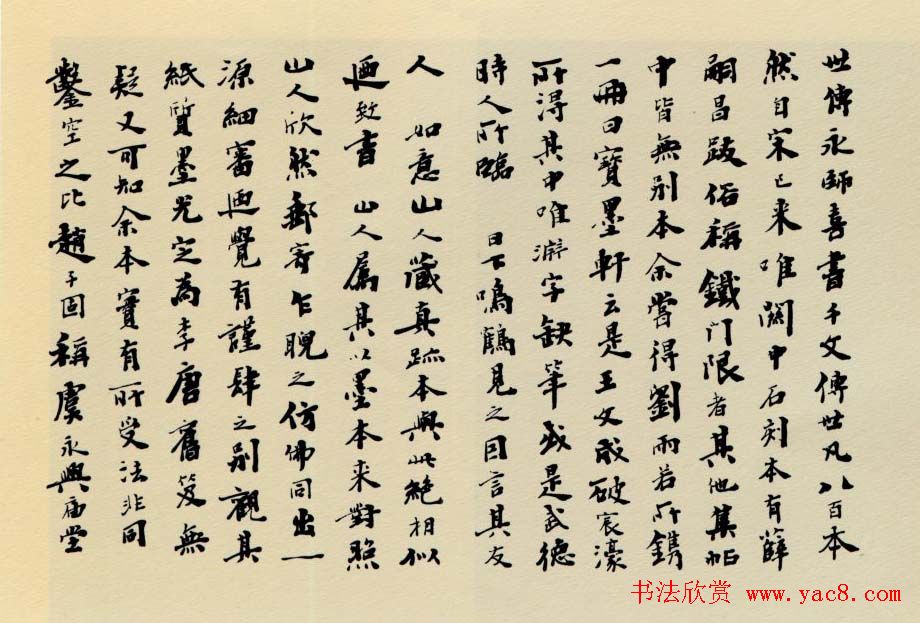 世傳永師喜書千文傳世凡八百本
然自宋已来唯關中石刻本有薛
嗣昌跋俗稱鐵門限者其他集帖
中皆無别本余嘗得劉雨若所鐫
一冊曰寶墨軒云是王文成破宸濠
所得其中唯淵字缺筆或是武德
時人所臨 日下鳴鶴見之因言其友
人 如意山人藏真跡本與此絶相似
迺致書 山人属其以墨本来對照
山人欣然郵寄乍睨之仿佛同出一
源細審迺覺有謹肆之别觀其
紙質墨光定為李唐舊笈無
疑又可知余本實有所受法非同
鑿空之比趙子固稱虞永興庙堂
书法欣赏 www.yac8.com